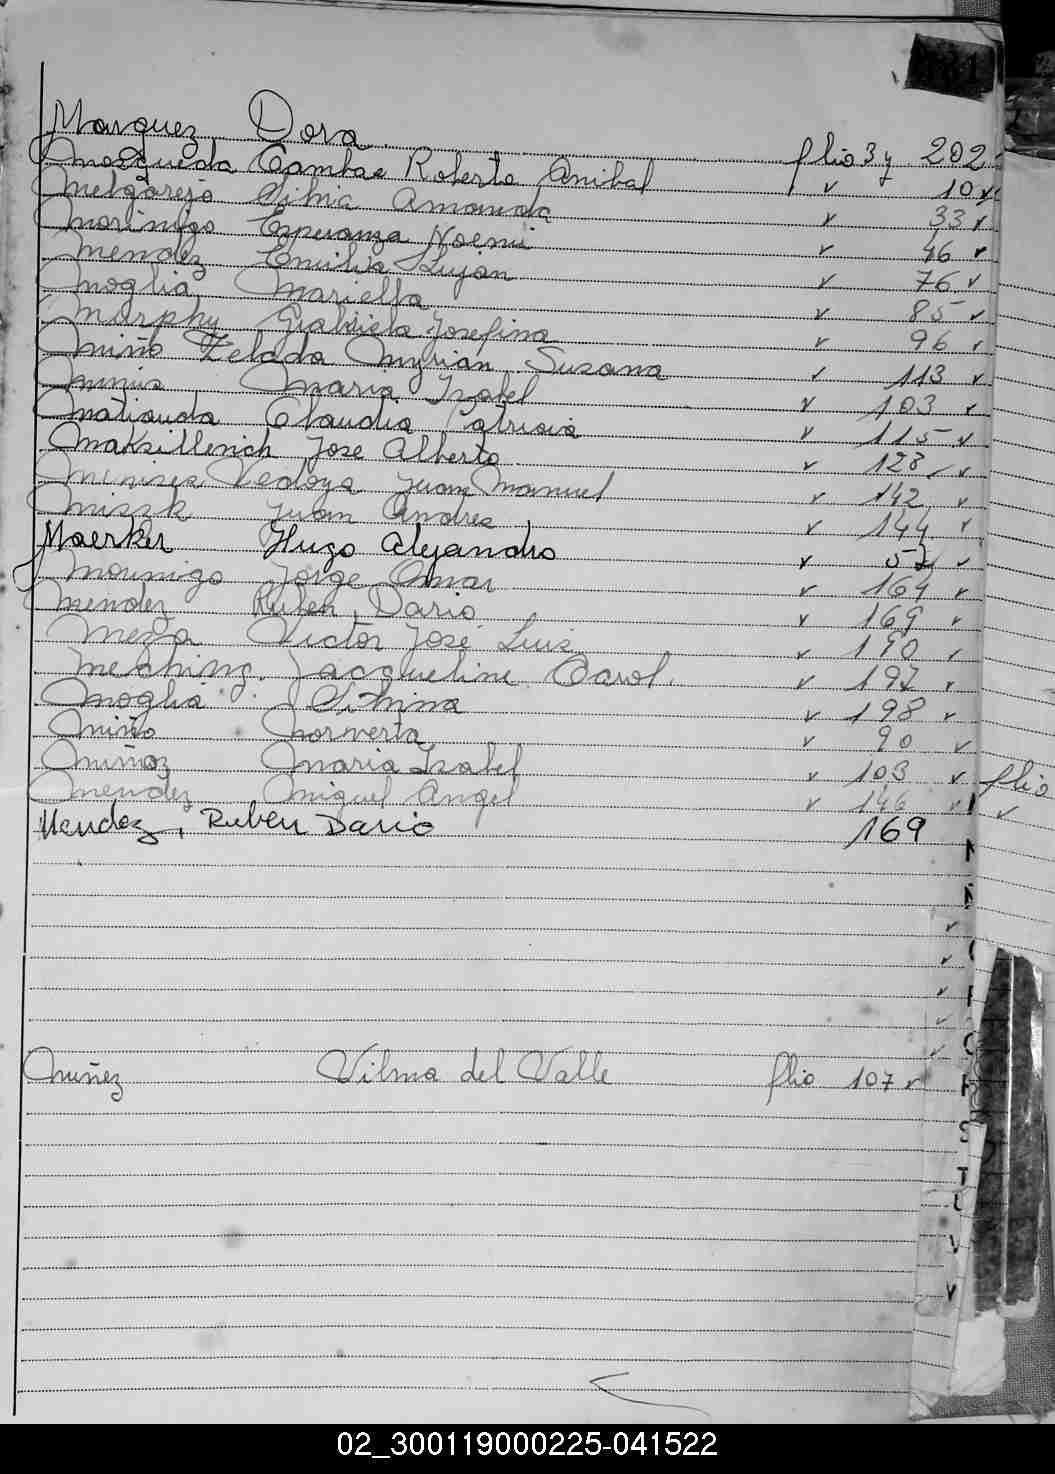 181
Marquez Dora flio 3 y 202
Mosqueda Gambae Roberto Anibal v 10 v
Melgarejo Silvia Amanda v 33 v
Morinigo Esperanza Noemi v 46 v
Mendez Emilia Lujan v 76 v
Moglia, Mariella v 85 v
Murphy Grabiela Josefina v 96 v
Miño Zelada Myrian Suzana v 113 v
Munis Maria Isabel v 103 v
Matiauda Claudia Patricia v 115 v
Maksillenich Jose Alberto v 128 v
Vedoya Juan Manuel v 142 v
Miszk Juan Andres v 144 v
Maerker Hugo Alejandro v 57 v
Morinigo Jorge Omar v 164 v
Mendez Ruben Dario v 169 v
Meza Victor José Luis v 190 v
Melching Jacqueline Carol. v 197 v
Moglia Silvina v 198 v
Miño Norverta v 90 v
Muñoz Maria Isabel v 103 v flio
Mendez Miguel Angel v 146 v v
Mendez, Ruben Dario 169
Nuñez Vilma del Valle flio 107 v
02_300119000225-041522